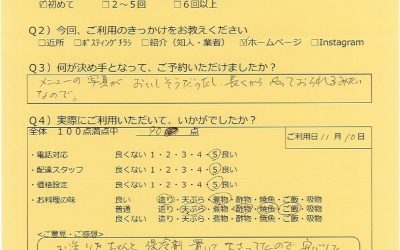 ☑初めて □2～5回 □6回以上
Q2）今回、ご利用のきっかけをお教えください
□近所 □ﾎﾟｽﾃｨﾝｸﾞﾁﾗｼ □紹介（知人・業者） ☑ホームページ □Instagram
Q3）何が決め手となって、ご予約いただけましたか？
メニューの写真がおいしそうだったし、長くから
なので。
Q4）実際にご利用いただいて、いかがでしたか？
全体 100点満点中 90 点
ご利用日11月10日
・電話対応 良くない 1・2・3・4・5 良い
・配達スタッフ 良くない 1・2・3・4・5 良い
・価格設定 良くない 1・2・3・4・5 良い
・お料理の味 良い 造り・天ぷら・煮物・酢物・焼魚・ご飯・吸物
普通 造り・天ぷら・煮物・酢物・焼魚・ご飯・吸物
良くない 造り・天ぷら・煮物・酢物・焼魚・ご飯・吸物
＜ご意見・ご感想＞
お造りもちゃんと保冷剤